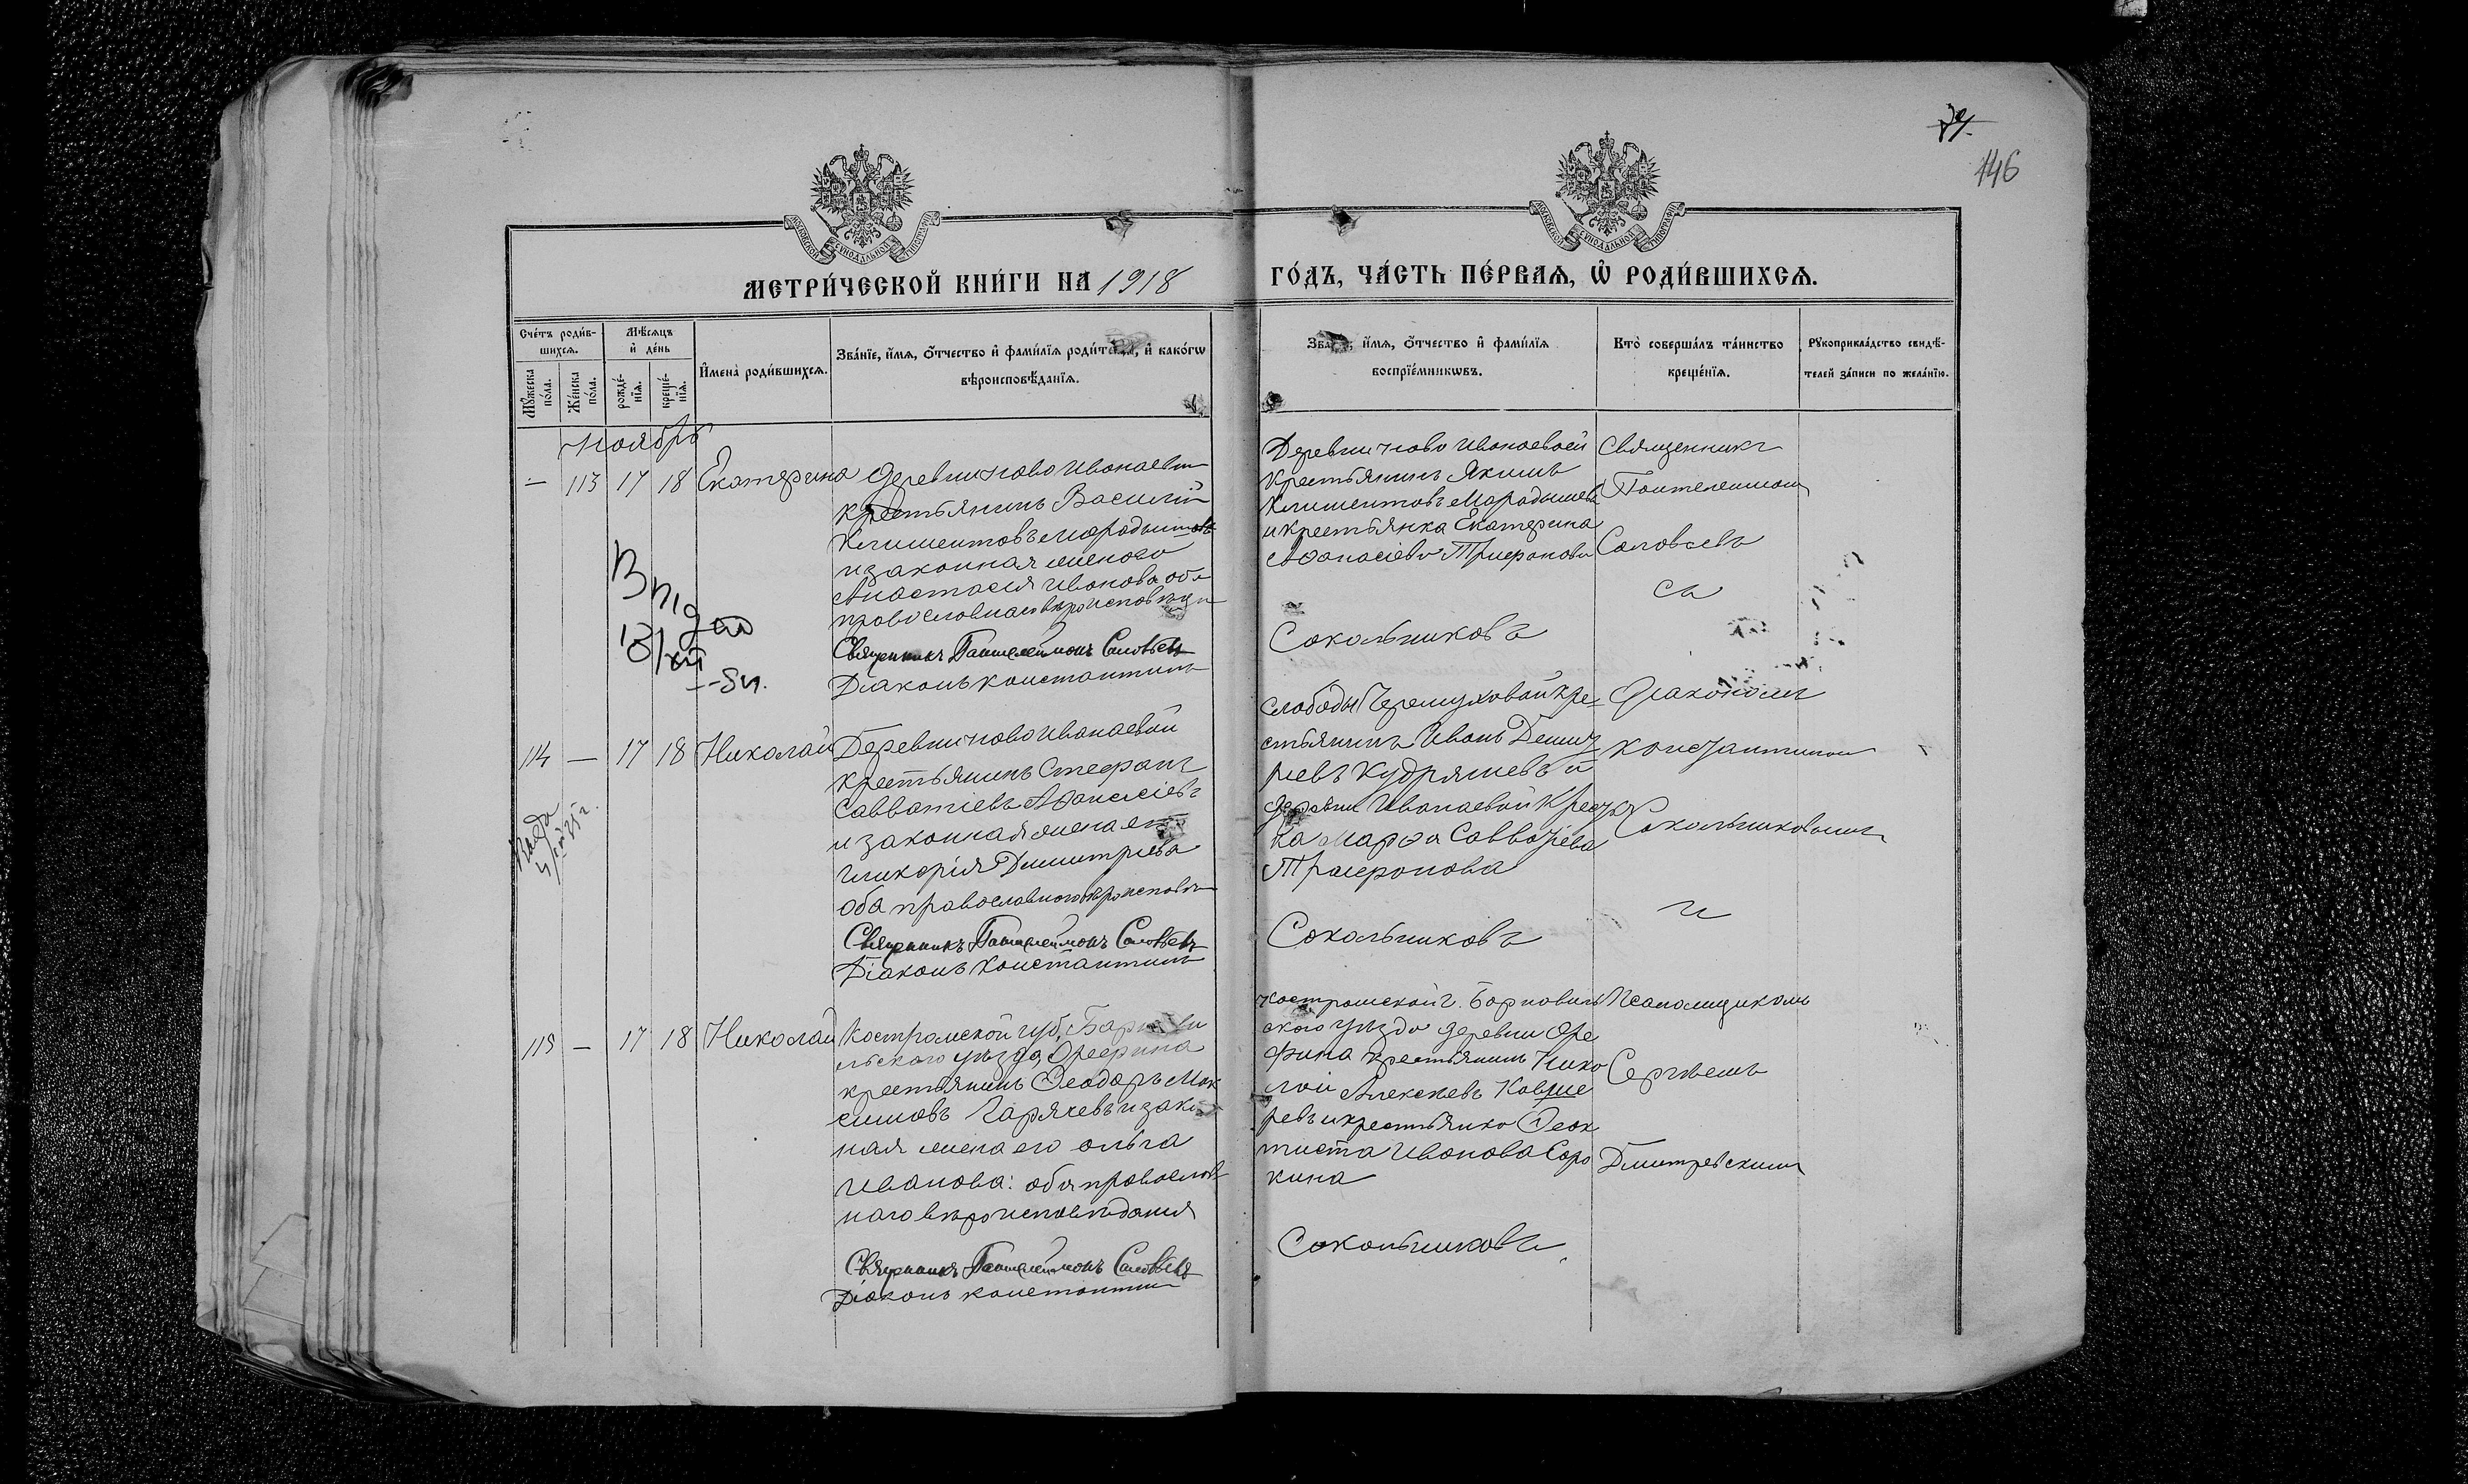 146
МЕТРИ́ЧЕСКОЙ КНИ́ГИ НА 1918 ГО́ДЪ, ЧА́СТЬ ПЕ́РВАЯ, Ѡ҆ РОДИ́ВШИХСЯ.
Сче́тъ роди́в-
шихся.
Мꙋ́жеска
по́ла.
Же́нска
по́ла.
Мѣ́сяцъ
и҆ де́нь
рожде́-
нїя.
креще́-
нїя.
И҆мена̀ роди́вшихся.
Зва́нїе, и҆́мя, ѻ҆́тчество и҆ фами́лїя роди́телей, и҆ како́гѡ
вѣроисповѣ́данїя.
Зва́нїе, и҆́мя, ѻ҆́тчество и҆ фами́лїя
воспрїе́мникѡвъ.
Кто̀ соверша́лъ та́инство
креще́нїя.
Рꙋкоприкла́дство свидѣ́-
телей за́писи по жела́нїю.
Ноябрь
— 113 17 18 Екатерина
деревни Ново Иванаевы
крестьянинъ Василій
Климентовъ Мародышевъ
и законная жена его
Анастасия Иванова оба
православнаго вѣроисповѣдан
Священникъ Пантелеймонъ Соловьевъ
Діаконъ Константинъ
Деревни Ново Иванаевой
крестьянинъ Якимъ
Климентовъ Мародышевъ
и крестьянка Екатерина
Афанасіева Трифонова
Сокольниковъ
Священникъ
Пантелеимонъ
Соловьевъ
съ
Выдан
13/XII
114 — 17 18 Николай
Деревни Ново Иванаевой
крестьянинъ Стефанъ
Савватіевъ Афанасіевъ
и законная жена его
Гликерія Димитріева
оба православного вѣроисповѣд
Священникъ Пантелеймонъ Соловьевъ
Діаконъ Константинъ
слободы Черемуховой кре
стьянинъ Иванъ Димит
ріевъ Кудряшевъ и
деревни Иванаевой крест
ка Марфа Савватіева
Трифонова
Сокольниковъ
Діакономъ
Константиномъ
Сокольниковымъ
и
115 — 17 18 Николай
Костромской губ, Варнави
льского уѣзда, Орефина
крестьянинъ Феодоръ Мак
симовъ Гарячевъ и закон
ная жена его Ольга
Иванова: оба православ
наго вѣроисповѣдания
Священникъ Пантелеймонъ Соловьевъ
Діаконъ Константинъ
Костромской г. Варнавинъ
ского уѣзда деревни Оре
фина крестьянинъ Нико
лай Алексѣевъ
ревъ и крестьянка Феок
тиста Иванова Соро
кина
Сокольниковъ
Псаломщикомъ
Сергѣемъ
Дмитревскимъ